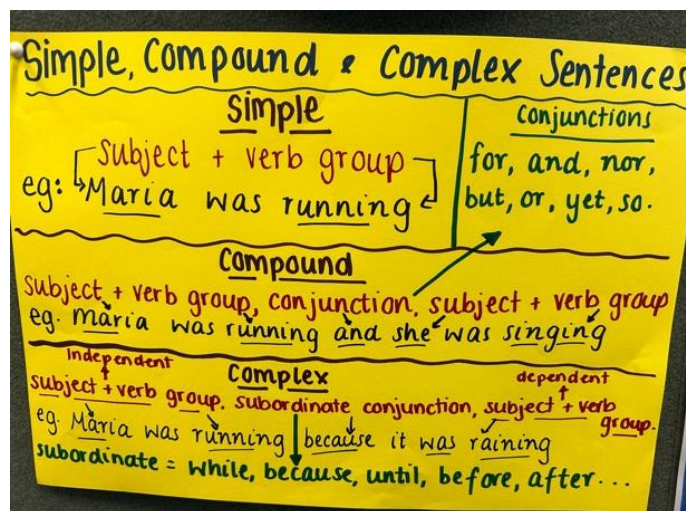 Simple, Compound & Complex Sentences
Simple
Subject + verb group
eg: Maria was running
Conjunctions
for, and, nor,
but, or, yet, so.
Compound
Subject + verb group, conjunction, subject + verb group
eg. Maria was running and she was singing
Complex
Independent
dependent
subject + verb group. subordinate conjunction, subject + verb
group.
eg. Maria was running because it was raining
subordinate = while, because, until, before, after...